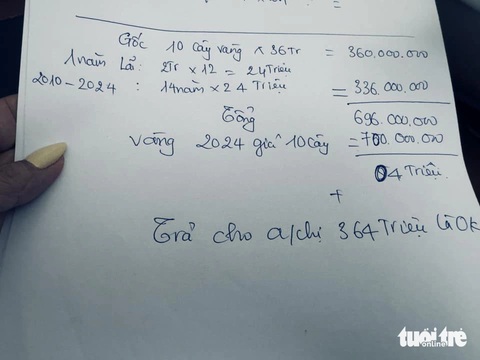 Gốc 10 cây vàng x 36Tr = 360.000.000
1 năm Lãi: 2Tr x 12 = 24Triệu
2010-2024 : 14năm x 24 Triệu = 336.000.000
Tổng 696.000.000
vàng 2024 giá 10 cây = 700.000.000
04 Triệu
+
Trả cho a/chị 364 Triệu là OK
tuổi trẻ
online